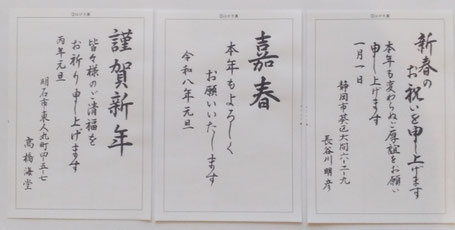 新春の
お祝いを申し上げます
本年も変わらぬご厚誼をお願い
申し上げます
一月一日
静岡市葵区大間六-二-九
長谷川明彦
嘉春
本年もよろしく
お願いいたします
令和八年元旦
謹賀新年
皆々様のご清福を
お祈り申し上げます
丙午元旦
明石市東人丸町四五-七
高橋海堂